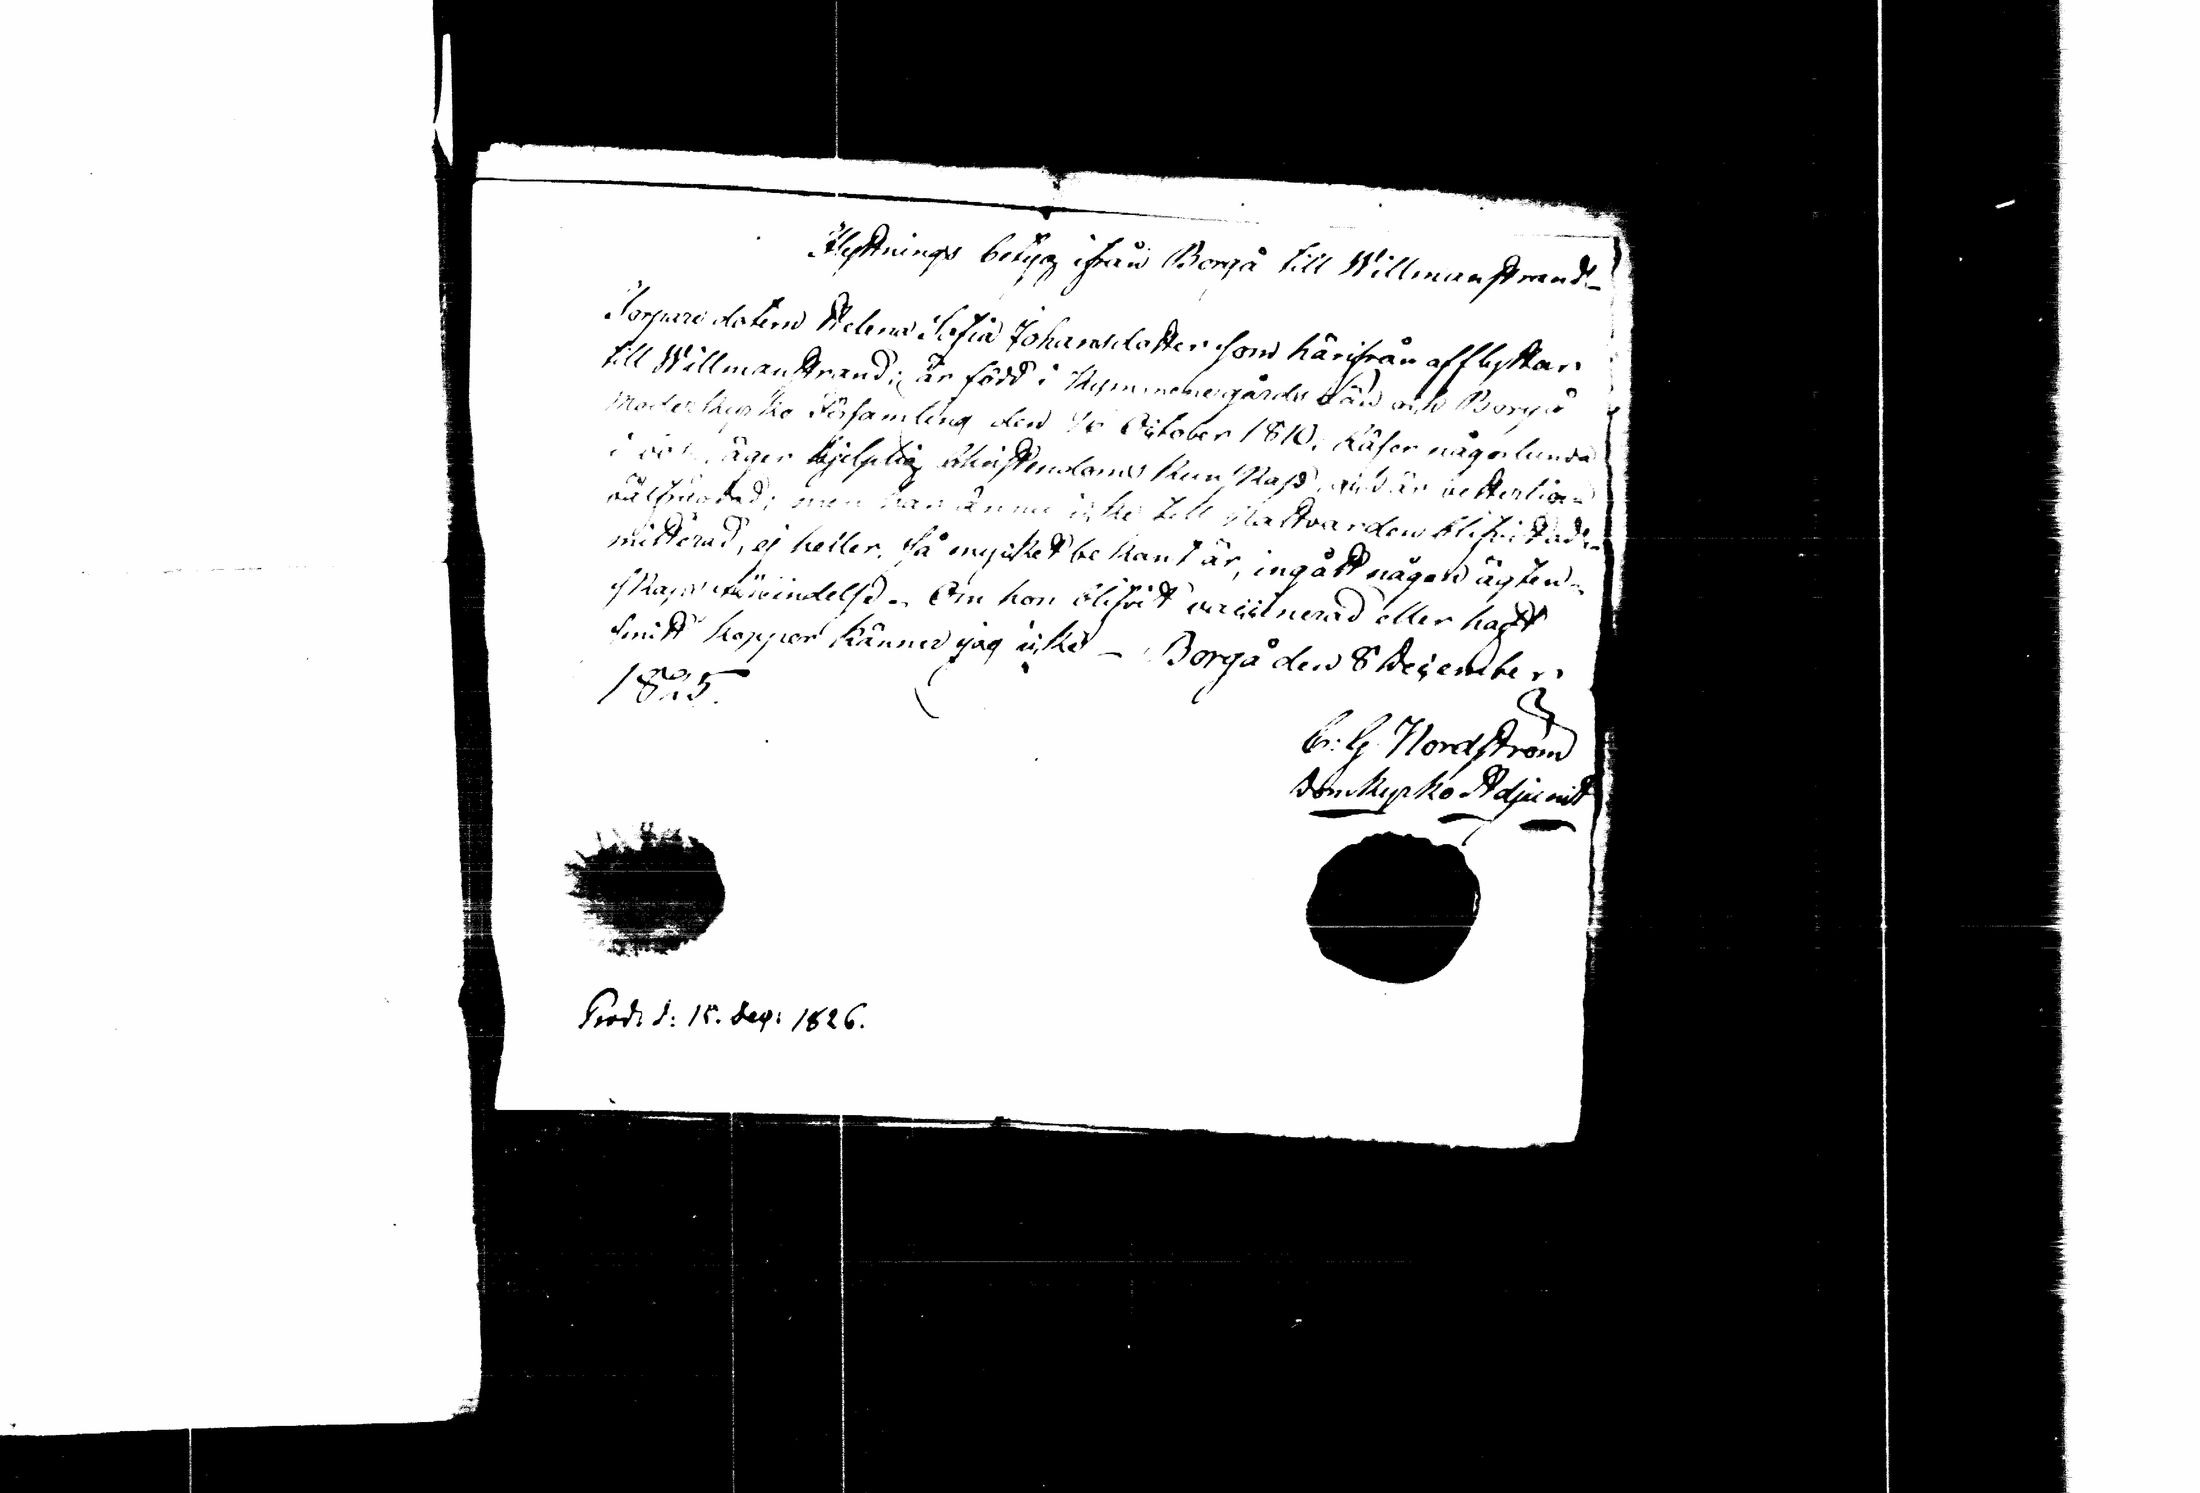 Flyttnings betyg ifrån Borgå till Willmanstrand_
Torpare dotern Helena Sofia Johansdotter som härifrån afflyttar
till Willmanstrand; är född i Kymmenegårds Län och Borgå
Moderkyrko Församling den October 1810, Läser någorlunda
i bok, äger hjelplig Christendoms Kunskap och är vetterligen
välfrägdad; men har ännu icke till Nattvarden blifvit ad-
mitterad, ej heller, så mycket bekant är, ingått någon ägten-
skaps förbindelse. Om hon blifvit vaccinerad eller haft
smitt koppor känner jag icke _ Borgå den 8 December
1825.
C: G Nordström
Domkyrko Adjunct
Prod. d: 15. Sep: 1826.